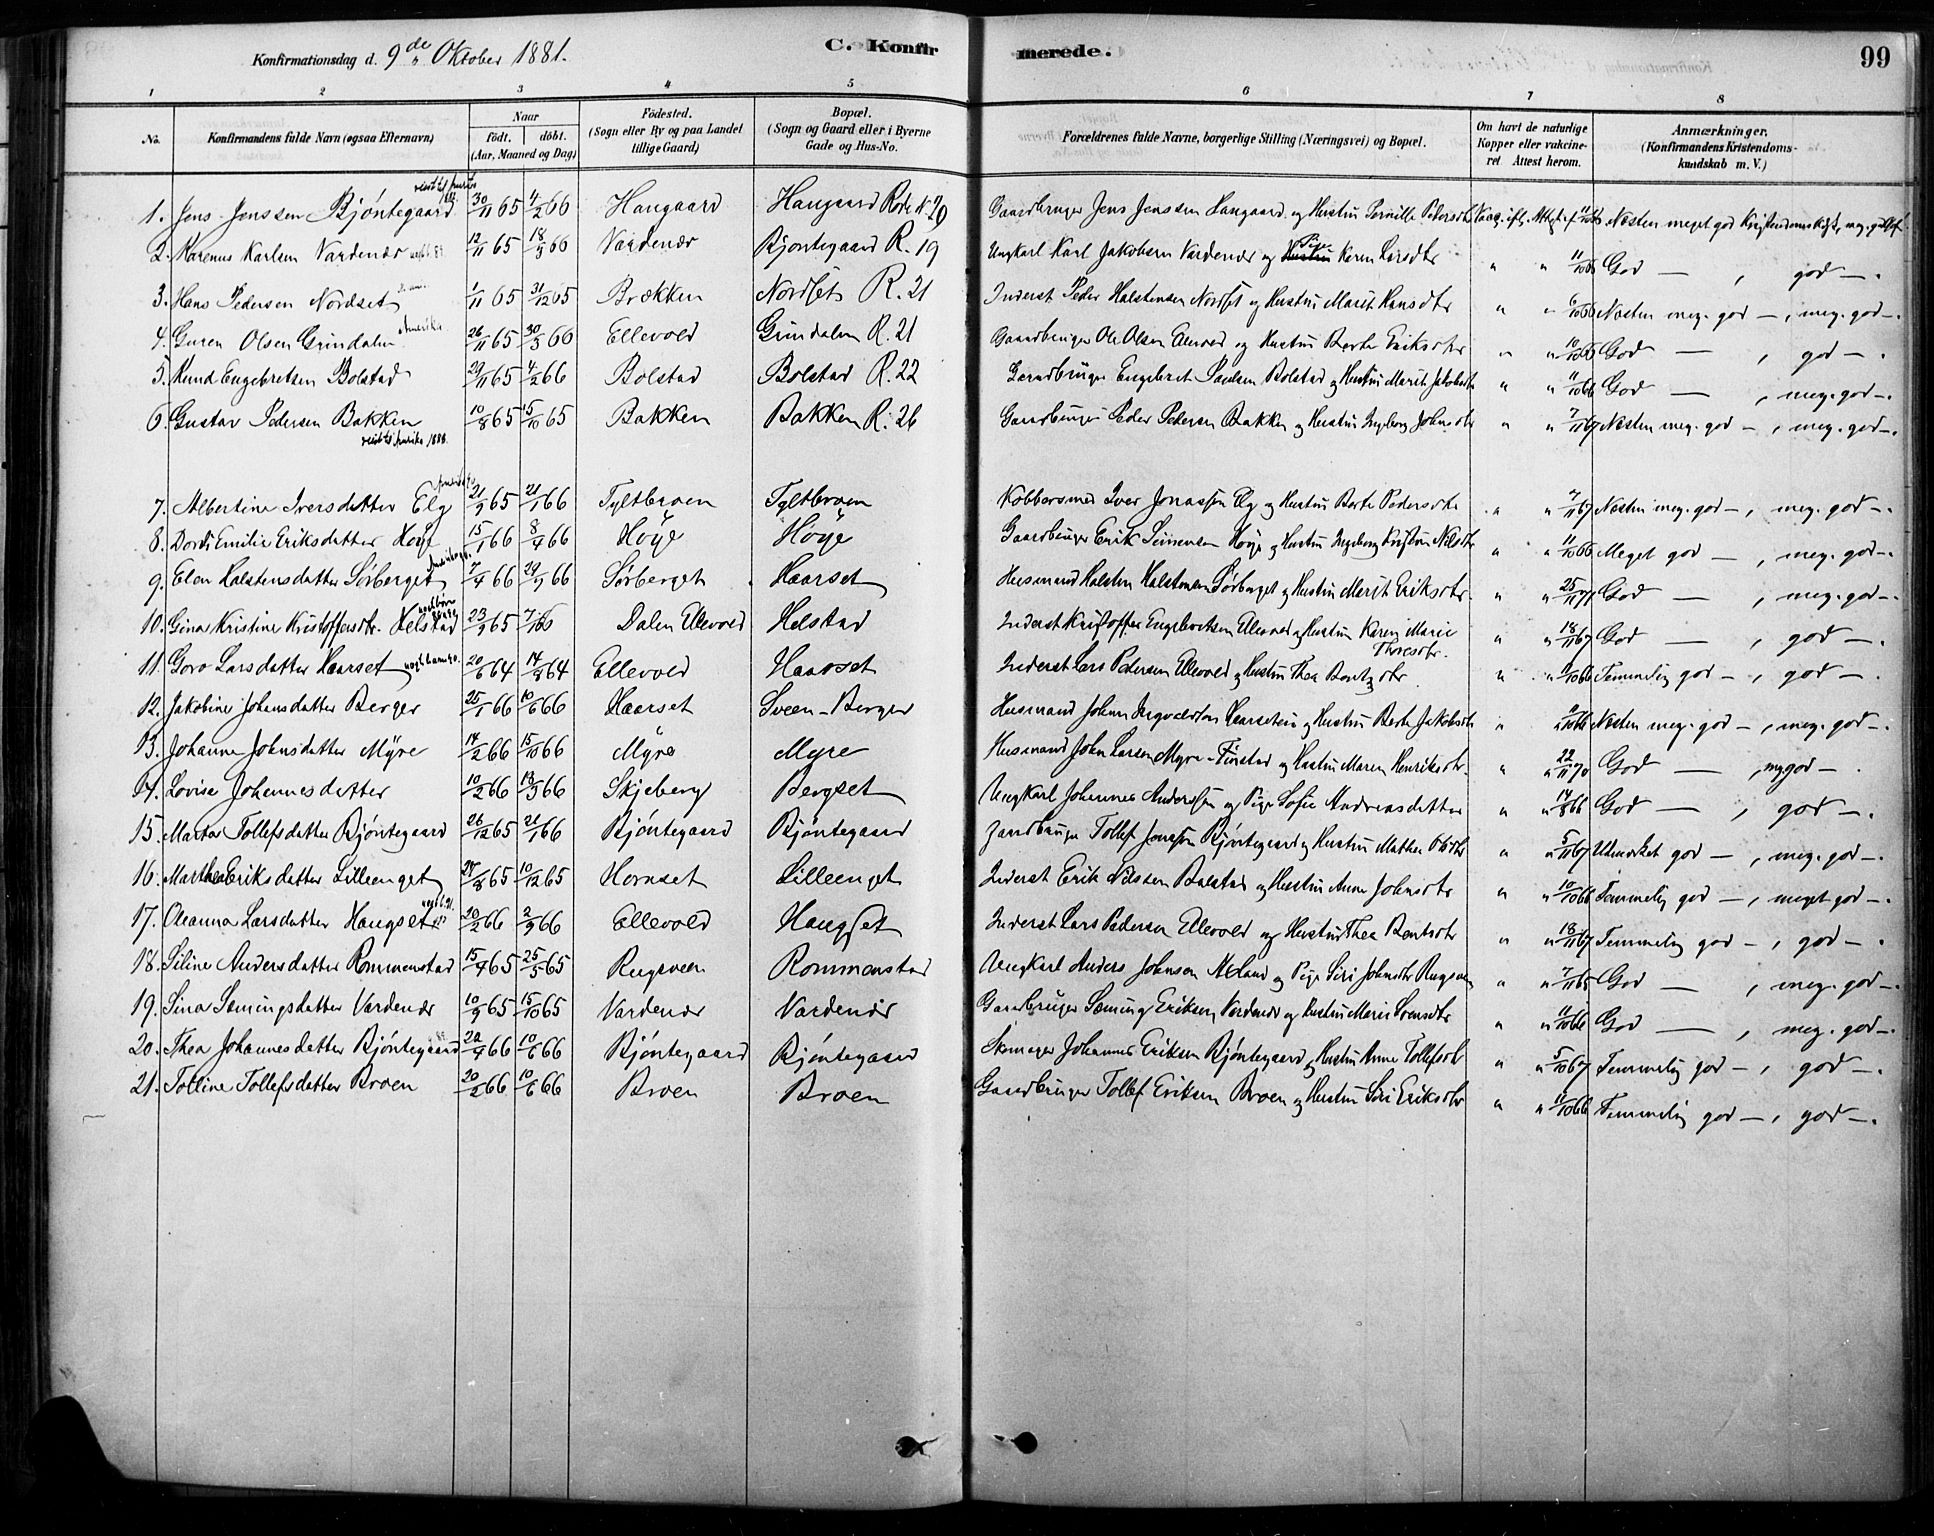 Konfirmationsdag d. 9de Oktober 1881.
C. Konfirmerede.
99
1 2 3 4 5 6 7 8
No. Konfirmandens fulde Navn (ogsaa Efternavn)
Naar födt. döbt. (Aar, Maaned og Dag)
Födested. (Sogn eller By og paa Landet tillige Gaard)
Bopæl. (Sogn og Gaard eller i Byerne Gade og Hus-No.
Forældrenes fulde Navne, borgerlige Stilling (Næringsvei) og Bopæl.
Om havt de naturlige Kopper eller vakcineret Attest herom.
Anmærkninger. (Konfirmandens Kristendomskundskab m. V.)
1. Jens Jenssen Bjöntegaard 30/11 65 4/2 66 Haugaard Haugaard Gaardbruger Jens Jenssen Haugaard og Hustru Pernille Pedersdtr Næsten meget god
2. Karenus Karlsen Vardenær 12/11 65 18/3 66 Vardenær Bjöntegaard R. 19 Ungkarl Karl Jakobsen Vardenær og Pige Karen Larsdtr " " 11/10 66 God — , god —.
3. Hans Pedersen Nordset 1/11 65 31/12 65 Brækken Nordset R. 21 Inderst Peder Halstensen Nordset og Hustru Marit Hansdtr " " 6/10 66 Næsten meg. god — , meg. god —.
4. Olsen Grindalen Amerika 26/11 65 30/3 66 Ellevold Grindalen R. 21 Gaardbruger Ole Olsen Ellevold og Hustru Berte Eriksdtr " " God — , god —.
5. Knud Engebretsen Bolstad 29/11 65 4/2 66 Bolstad Bolstad R. 22 Gaardbruger Engebret Paulsen Bolstad og Hustru Marit Jakobsdtr " " 11/10 66 God — , meg. god —.
6. Gustav Pedersen Bakken 10/8 65 15/10 65 Bakken Bakken R. 26 Gaardbruger Peder Pedersen Bakken og Hustru Ingeborg Johnsdtr " " 7/11 67 Næsten meg. god — , meg. god —.
reist t. Amerika 1888.
7. Albertine Iversdatter Elg 21/9 65 21/1 66 Tyltbroen Tyltbroen Kobbersmed Iver Jonassen Elg og Hustru Berte Pedersdtr " " 7/11 67 Næsten meg. god — , meg. god —.
8. Dordi Emilie Eriksdatter Höye 15/1 66 8/4 66 Höye Höye Gaardbruger Erik Simensen Höye og Hustru Ingeborg Kristine Nilsdtr " " 11/10 66 Meget god — , meg. god —.
9. Elen Halstensdatter Sörberget 7/4 66 29/9 66 Sörberget Haarset Husmand Halsten Halstensen Sörberget og Hustru Marit Eriksdtr. " " 25/11 71 God — , meg. god —.
10. Gina Kristine Kristoffersdtr. Helstad 23/9 65 Dalen Ellevold Helstad Inderst Kristoffer Engebretsen Ellevold og Hustru Karen Marie Thoresdtr. " " 18/11 67 God — , god —.
11. Goro Larsdatter Haarset 20/6 64 14/8 64 Ellevold Haarset Inderst Lars Pedersen Ellevold og Hustru Thea Bentsdtr " " Temmelig god — , god —.
12. Jakobine Johansdatter Berger 25/1 66 10/6 66 Haarset Sveen-Berger Husmand Johan Haarseteie og Hustru Berte Jakobsdtr " " Næsten meg. god — , meg. god —.
13. Johanne Johnsdatter Myre 14/2 66 15/10 66 Myre Myre Husmand John Larsen Myre-Finstad og Hustru Maren Henriksdtr. " " 22/11 70 God — , my god —.
14. Lovise Johannesdatter 10/2 66 18/3 66 Skjeberg Bergset Ungkarl Johannes Anderssen og Pige Sofie Andreasdatter " " 14/8 66 God — , god —.
15. Marta Tollefsdatter Bjöntegaard 26/12 65 21/1 66 Bjöntegaard Bjöntegaard Gaardbruger Tollef Jonassen Bjöntegaard og Hustru Mathea Olsdtr " " 5/11 67 Udmærket god — , meg. god —.
16. Marthea Eriksdatter Lilleenget 28/8 65 10/12 65 Hornset Lilleenget Inderst Erik Nilssen Bolstad og Hustru Anne Johnsdtr " " 10/10 66 Temmelig god — , meget god —.
17. Oleanna Larsdatter Haugset 20/2 66 2/9 66 Ellevold Haugset Inderst Lars Pedersen Ellevold og Hustru Thea Bentsdtr " " 18/11 67 Temmelig god — , god —.
18. Siline Andersdatter Rommenstad 15/4 65 25/5 65 Rugsveen Rommenstad Ungkarl Anders Johnsen og Pige Siri Johnsdtr " " 7/11 65 God — , meg. god —.
19. Sina Sæmingsdatter Vardenær 10/9 65 15/10 65 Vardenær Vardenær Gaardbruger Sæming Eriksen Vardenær og Hustru Mari Svensdtr " " 11/10 66 God — , meg. god —.
20. Thea Johannesdatter Bjöntegaard 20/4 66 10/6 66 Bjöntegaard Bjöntegaard Skomager Johannes Eriksen Bjöntegaard og Hustru Anne Tollefsdtr " " 5/10 67 Temmelig god — , god —.
21. Tolline Tollefsdatter Broen 20/2 66 10/6 66 Broen Broen Gaardbruger Tollef Eriksen Broen og Hustru Siri Eriksdtr " " 11/10 66 Temmelig god — , god —.